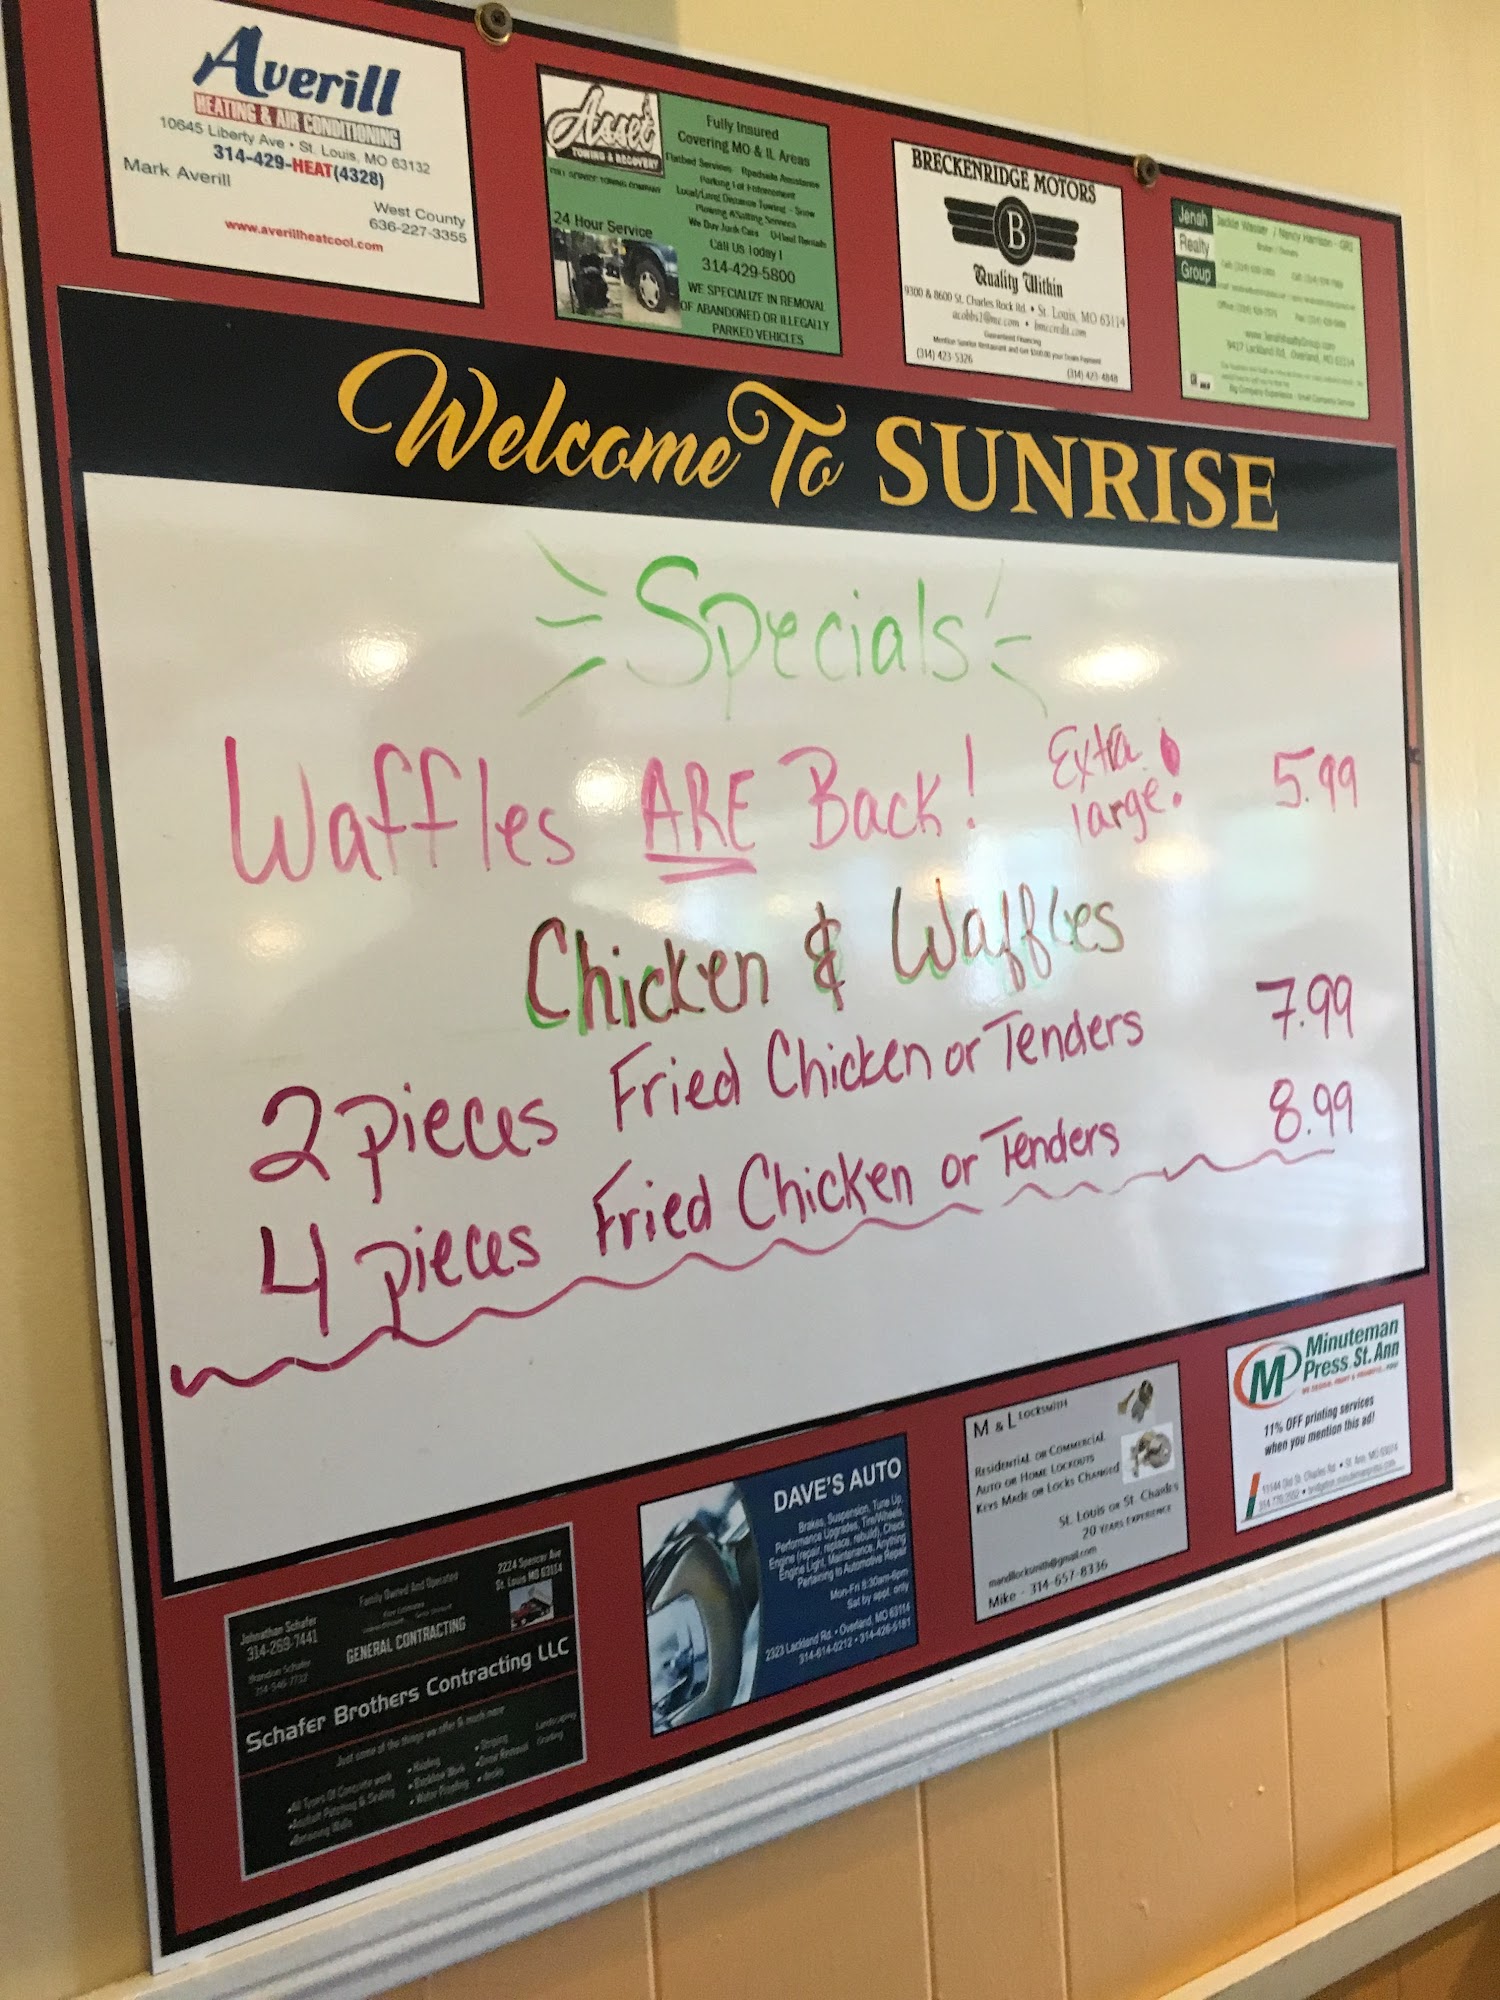 Averill
HEATING & AIR CONDITIONING
10645 Liberty Ave • St. Louis, MO 63132
314-429-HEAT(4328)
Mark Averill
West County
636-227-3355
www.averillheatcool.com
Asset
TOWING & RECOVERY
FULL SERVICE TOWING COMPANY
24 Hour Service
Fully Insured
Covering MO & IL Areas
Flatbed Services Roadside Assistance
Parking Lot Enforcement
Local/Long Distance Towing - Snow
Plowing & Salting Services
We Buy Junk Cars U-Haul Rentals
Call Us Today !
314-429-5800
WE SPECIALIZE IN REMOVAL
OF ABANDONED OR ILLEGALLY
PARKED VEHICLES
BRECKENRIDGE MOTORS
B
Quality Within
9300 & 8600 St. Charles Rock Rd. • St. Louis, MO 63114
Guaranteed Financing
Mention Sunrise Restaurant and Get $200.00 your Down Payment
(314) 423-5326
(314) 423-4848
Jenah
Realty
Group
Jackie Wasser / Nancy Harrison - GRI
www.JenahRealtyGroup.com
9417 Lackland Rd, Overland, MO 63114
Big Company Experience - Small Company Service
Welcome To SUNRISE
Specials
Waffles ARE Back! Extra large! 5.99
Chicken & Waffles
2 pieces Fried Chicken or Tenders 7.99
4 pieces Fried Chicken or Tenders 8.99
Johnathan Schafer
314-269-7441
Brandon Schafer
Family Owned And Operated
GENERAL CONTRACTING
2224 Spencer Ave
St. Louis MO 63114
Schafer Brothers Contracting LLC
Just some of the things we offer & much more
•All Types Of Concrete work
•Asphalt Patching & Sealing
•Retaining Walls
•Hauling
•Backhoe Work
•Water Proofing
•Striping
•Snow Removal
•decks
Landscaping
Grading
DAVE'S AUTO
Brakes, Suspension, Tune Up,
Performance Upgrades, Tire/Wheels,
Engine (repair, replace, rebuild), Check
Engine Light, Maintenance, Anything
Pertaining to Automotive Repair
Mon-Fri 8:30am-6pm
Sat by appt. only
2323 Lackland Rd. • Overland, MO 63114
314-614-0212 • 314-426-5181
M & L LOCKSMITH
RESIDENTIAL OR COMMERCIAL
AUTO OR HOME LOCKOUTS
KEYS MADE OR LOCKS CHANGED
ST. LOUIS OR ST. CHARLES
20 YEARS EXPERIENCE
mandllocksmith@gmail.com
Mike - 314-657-8336
Minuteman
Press. St. Ann
WE DESIGN, PRINT & PROMOTE... YOU!
11% OFF printing services
when you mention this ad!